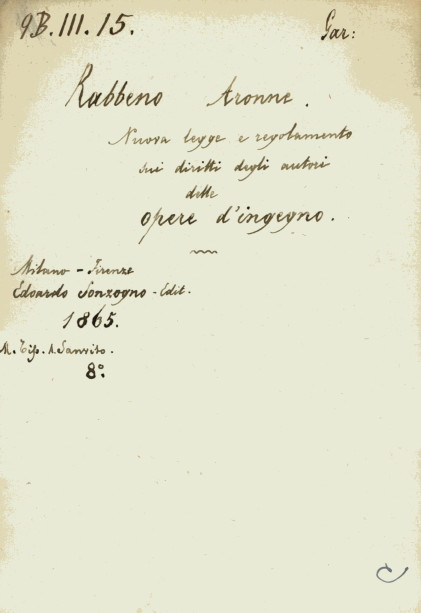 9B.III.15. Gar:
Rabbeno Aronne.
Nuova legge e regolamento
sui diritti degli autori
delle
opere d'ingegno.
Milano - Firenze
Edoardo Sonzogno - Edit.
1865.
M. Tip. A. Sanvito.
8º